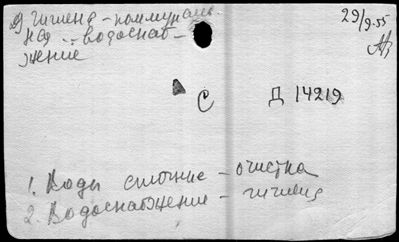 гигиена - коммуналь
ная - водоснаб-
жение
29/9.55
С Д 14219
1. Воды сточные - очистка
2. Водоснабжение - гигиена